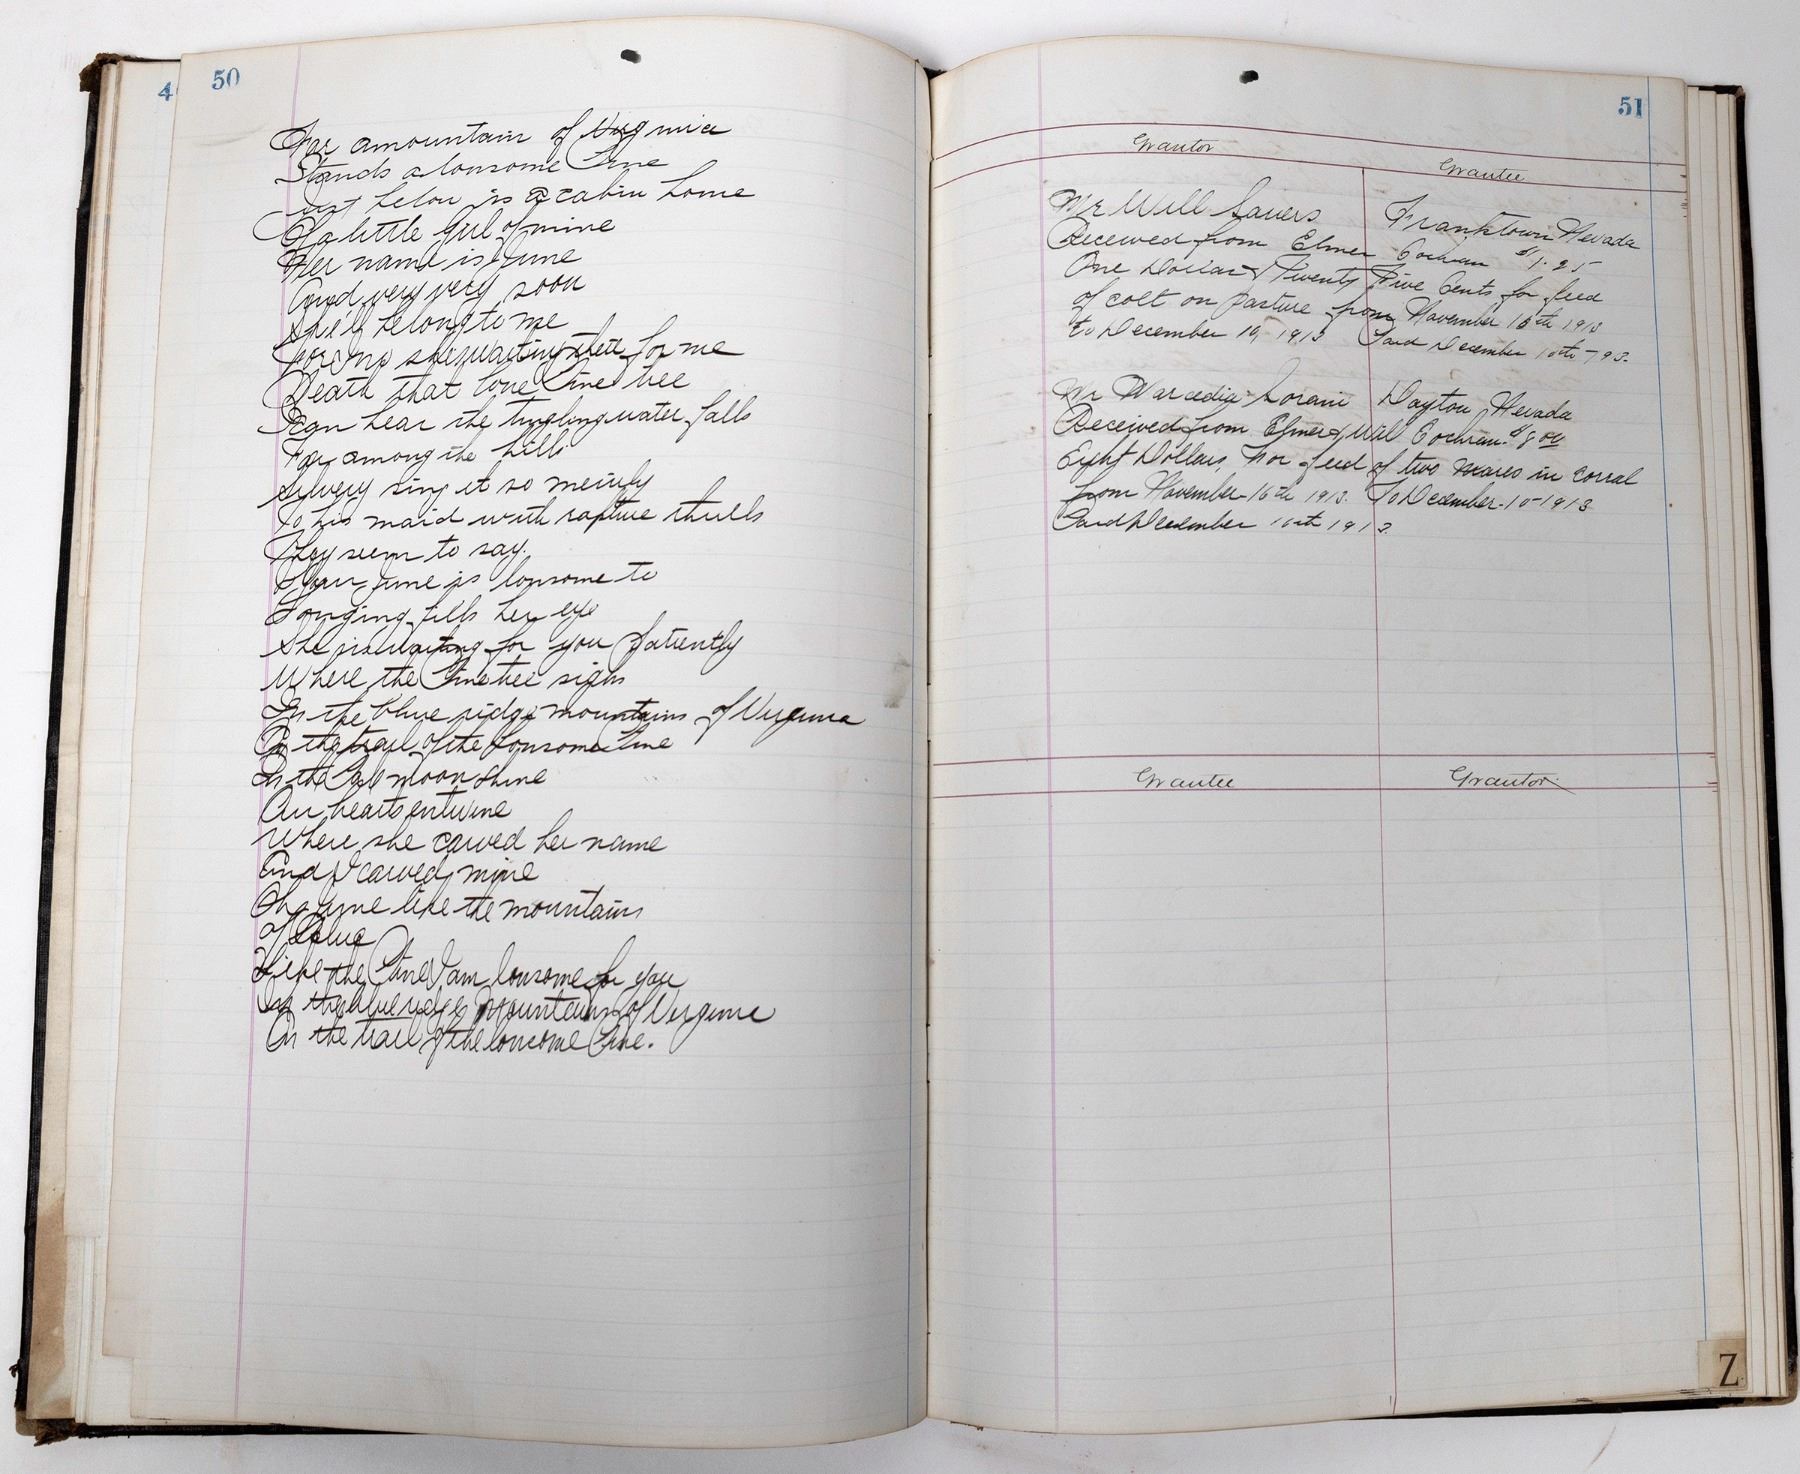 4
50
Far amountain of Virginia
Stands a lonsome Pine
just below is a cabin home
Of a little Girl of mine
Her name is June
And very very soon
She'll belong to me
for I no shes waiting there for me
Neath that lone Pine tree
I can hear the tingling water falls
Far among the hills
sing it so
To his maid with rapture thrills
They seem to say.
Your June is lonsome to
Longing fills her eye
She is waiting for you patiently
Where the Pine tree sighs
In the blue ridge mountains of Virginia
On the trail of the lonsome Pine
In the Pale moon shine
Our hearts entwine
Where she carved her name
And I carved mine
Oh June like the mountains
of Blue
Like the Pine I am lonsome for you
In the blue ridge Mountains of Virginia
On the trail of the lonsome Pine.
51
Grantor Grantee
Mr Will Sauers Franktown Nevada
Received from Elmer Cochran $1.25
One Dollar & Twenty Five Cents for feed
of colt on pasture from November 16th 1913
to December 10, 1913 Paid December 10th - 1913.
Mr Dayton Nevada
Received from Elmer & Will Cochran. $8.00
Eight Dollars, For feed of two mares in corral
from November-16th 1913. To December-10-1913
Paid December 10th 1913.
Grantee Grantor
Z